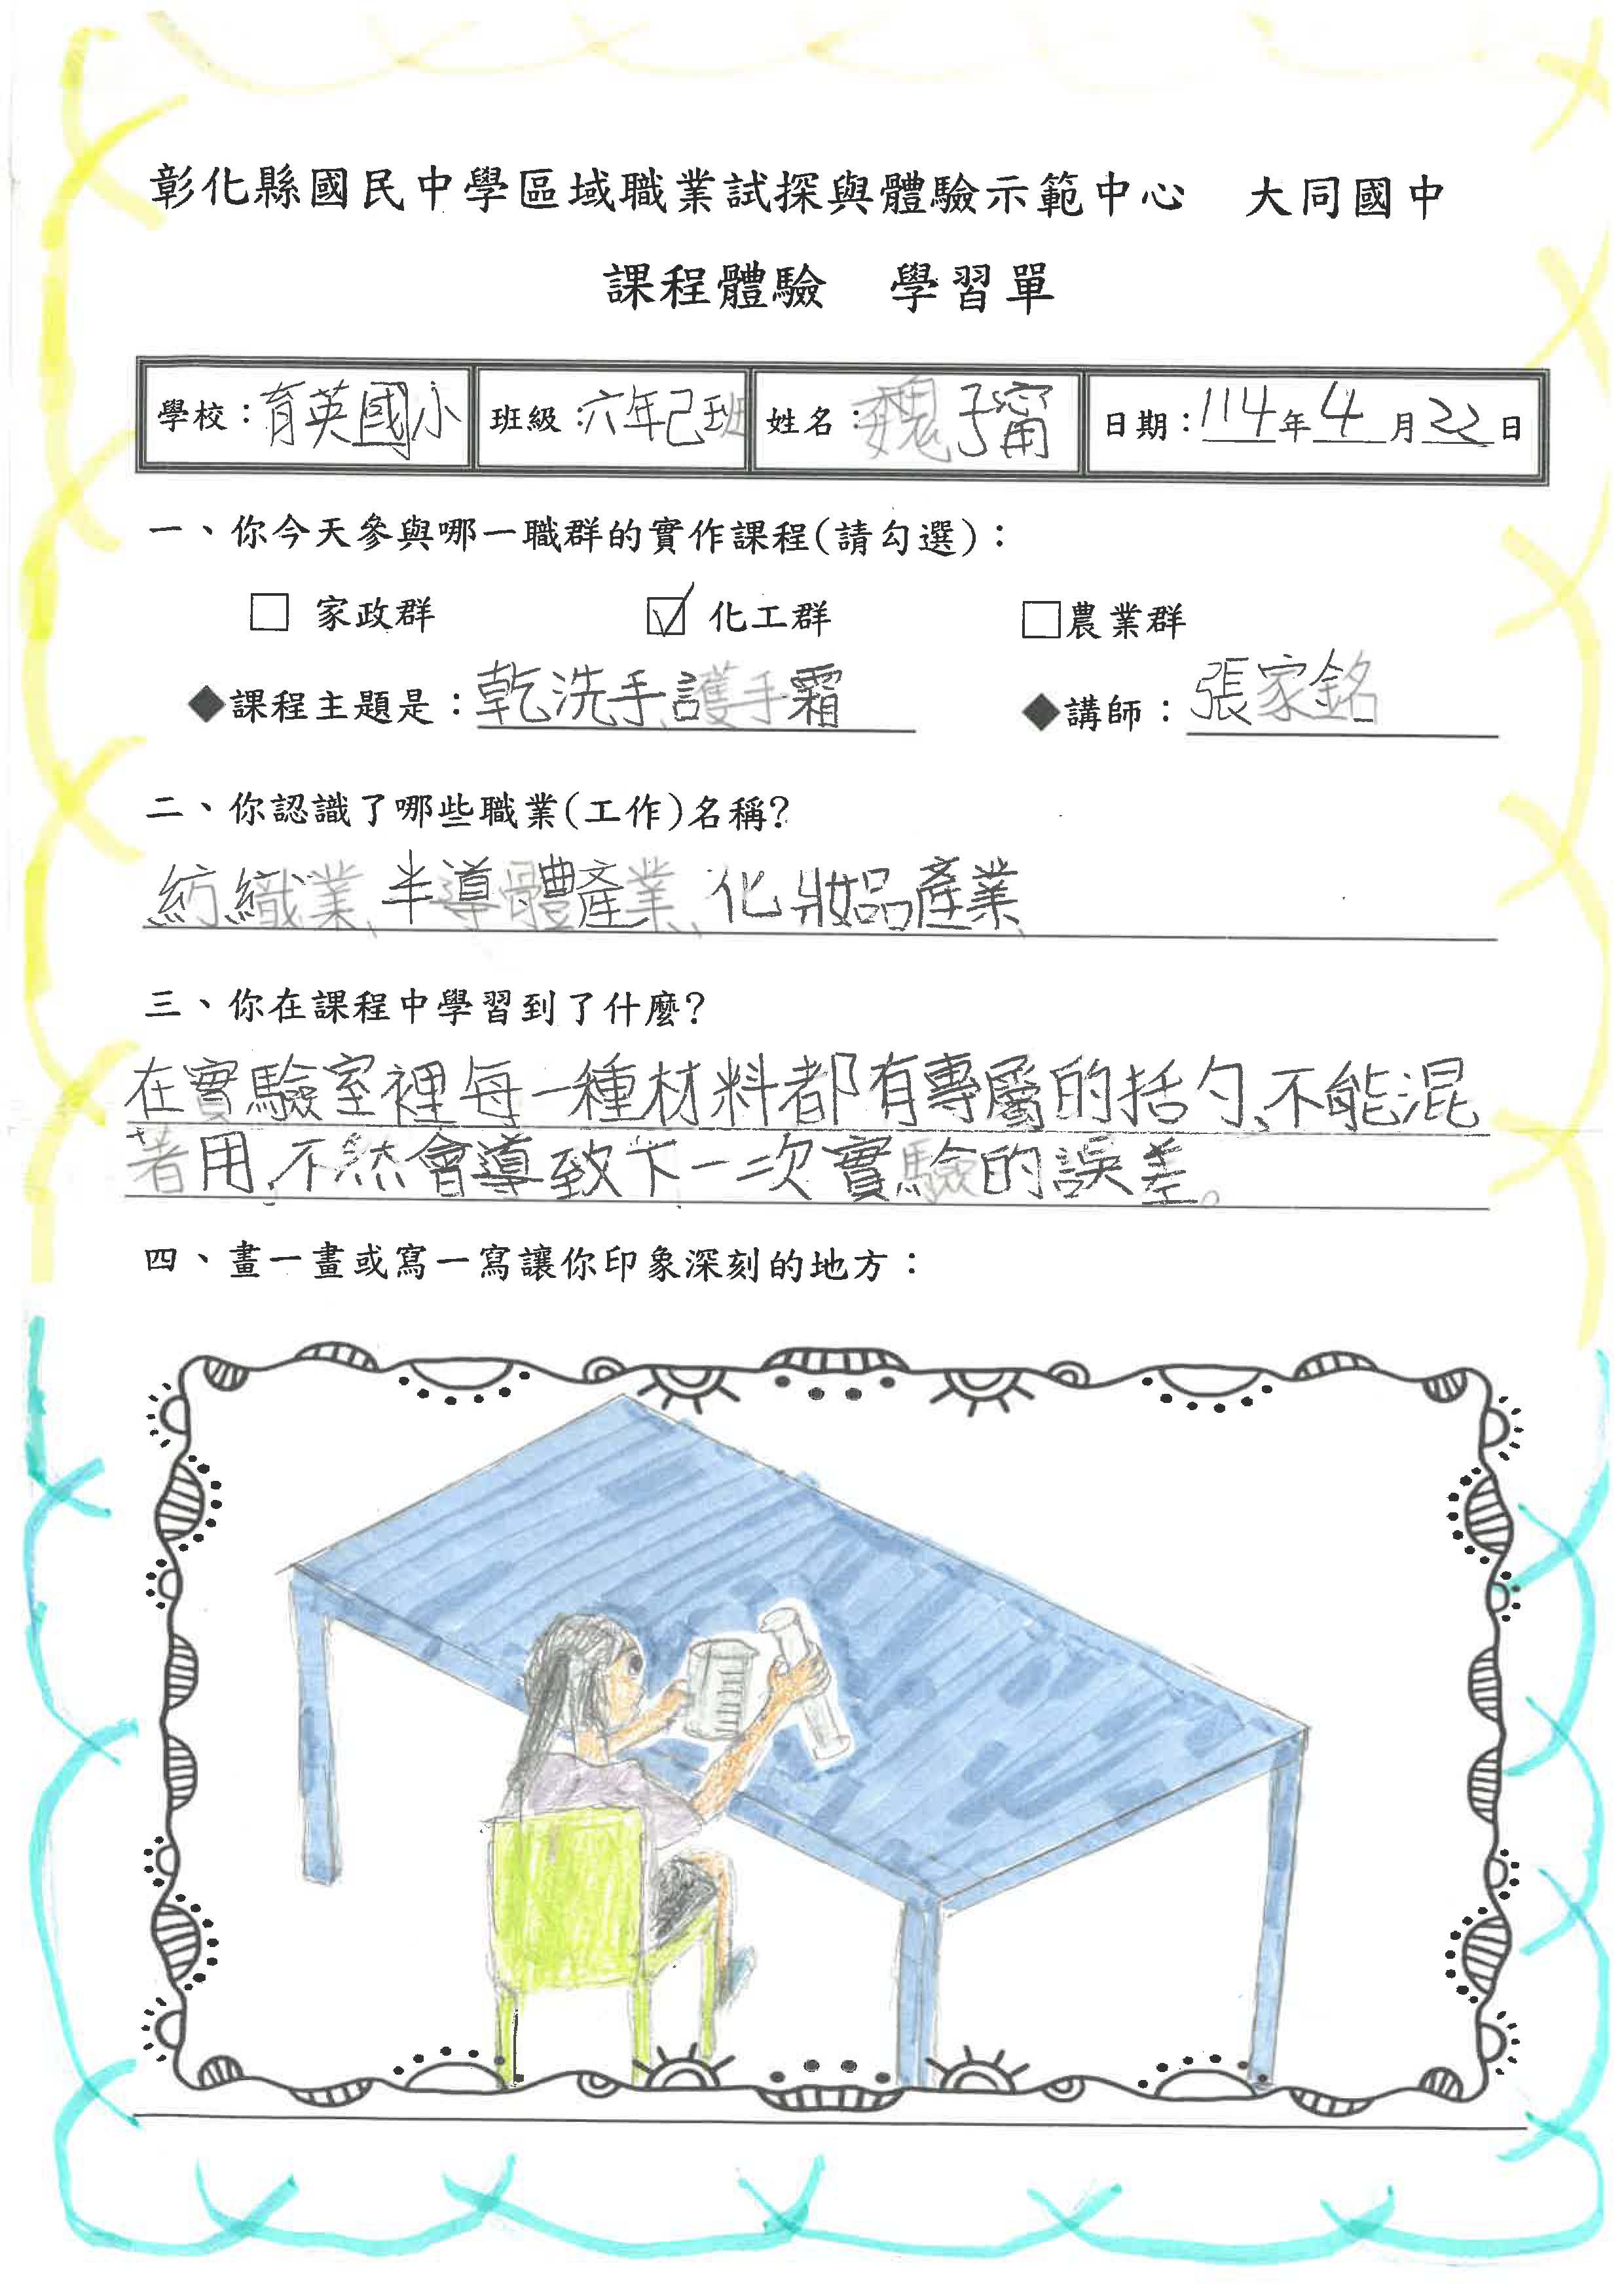 彰化縣國民中學區域職業試探與體驗示範中心　大同國中
課程體驗　學習單
學校：育英國小 班級：六年己班 姓名：魏子甯 日期：114年4月22日
一、你今天參與哪一職群的實作課程(請勾選)：
□ 家政群 ☑ 化工群 □農業群
◆課程主題是：乾洗手、護手霜 ◆講師：張家銘
二、你認識了哪些職業(工作)名稱?
紡織業、半導體產業、化妝品產業
三、你在課程中學習到了什麼?
在實驗室裡每一種材料都有專屬的括勺、不能混
著用,不然會導致下一次實驗的誤差。
四、畫一畫或寫一寫讓你印象深刻的地方：